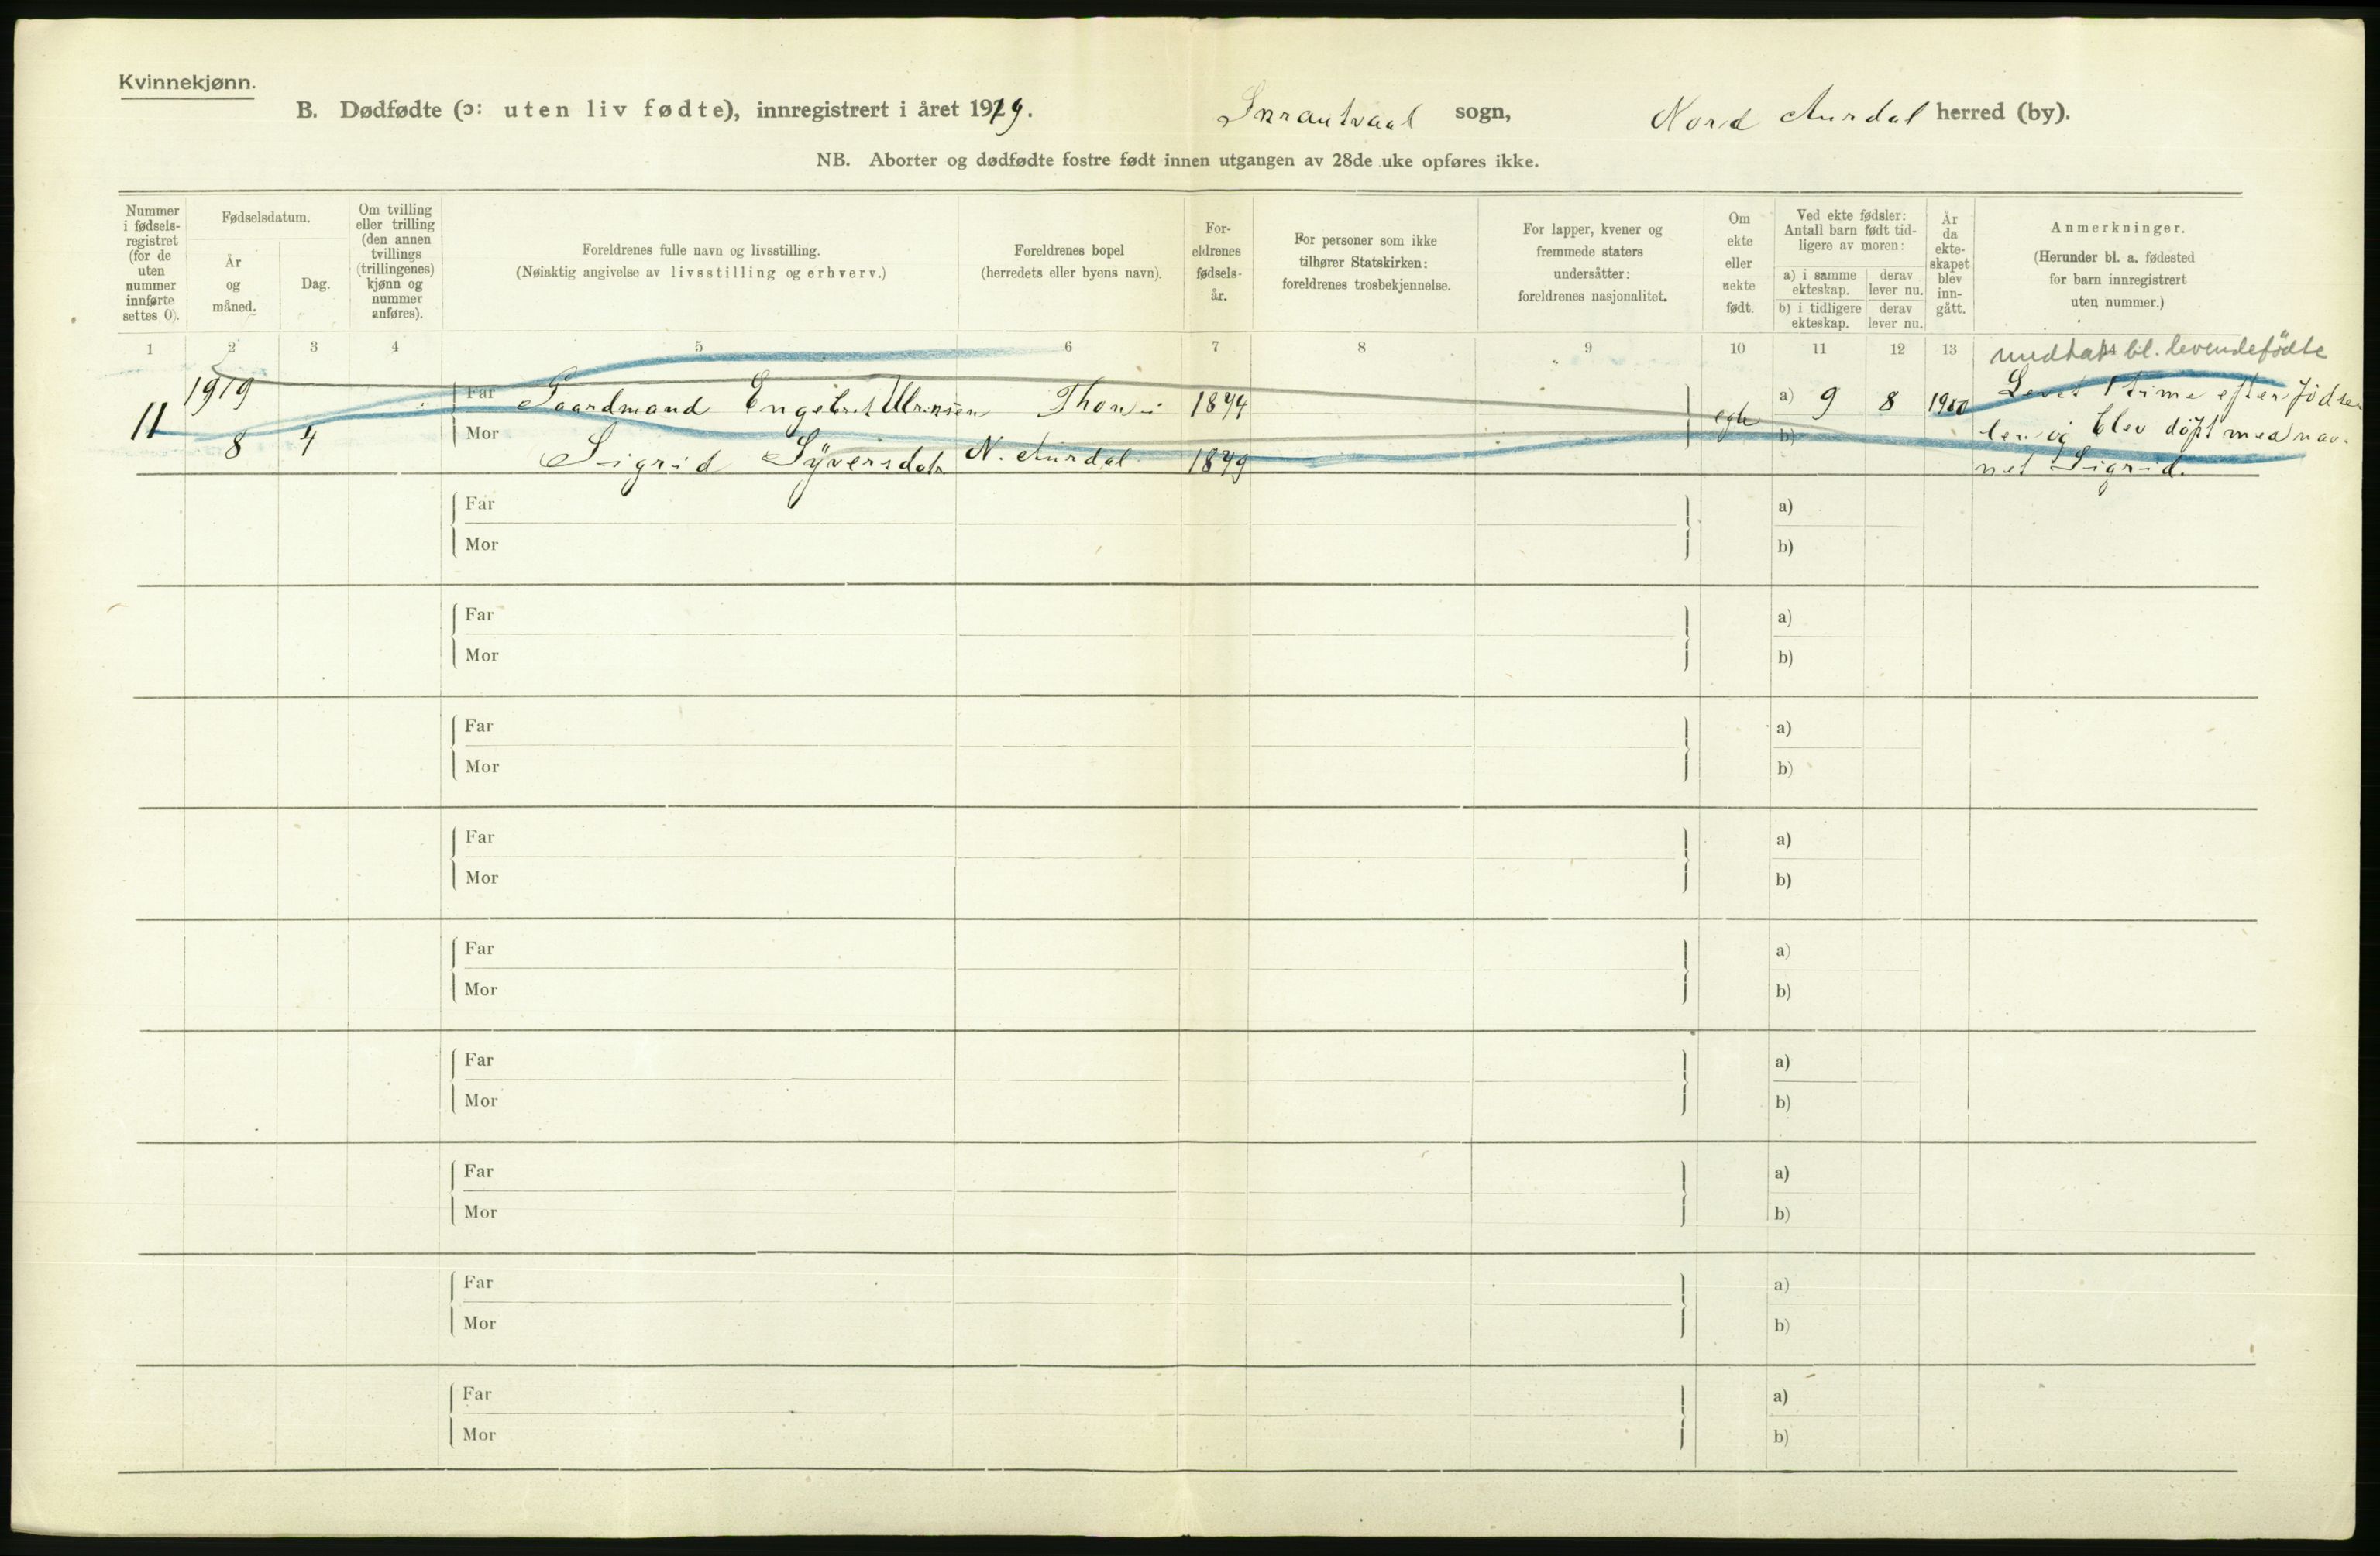 Kvinnekjønn.
B. Dødfødte (ɔ: uten liv fødte), innregistrert i året 1919. sogn, Nord Aurdal herred (by).
NB. Aborter og dødfødte fostre født innen utgangen av 28de uke opføres ikke.
Nummer i fødselsregistret (for de uten nummer innførte settes 0).
Fødselsdatum.
År og måned.
Dag.
Om tvilling eller trilling (den annen tvillings (trillingenes) kjønn og nummer anføres).
Foreldrenes fulle navn og livsstilling.
(Nøiaktig angivelse av livsstilling og erhverv.)
Foreldrenes bopel
(herredets eller byens navn).
Foreldrenes fødselsår.
For personer som ikke
tilhører Statskirken:
foreldrenes trosbekjennelse.
For lapper, kvener og
fremmede staters
undersåtter:
foreldrenes nasjonalitet.
Om ekte eller uekte født.
Ved ekte fødsler:
Antall barn født tidligere av moren:
a) i samme ekteskap.
derav lever nu.
b) i tidligere ekteskap.
derav lever nu.
År da ekteskapet blev inngått.
Anmerkninger.
(Herunder bl. a. fødested
for barn innregistrert
uten nummer.)
1 2 3 4 5 6 7 8 9 10 11 12 13
medtatt bl. levendefödte
11 1919 8 4
Far Gaardmand Engebret Thon 1874
Mor Sigrid Syversdatr N. Aurdal 1879
egte a) 9 8 1900
b)
Levet 1 time efter födse
len og blev döpt med nav-
net Sigrid.
Far a)
Mor b)
Far a)
Mor b)
Far a)
Mor b)
Far a)
Mor b)
Far a)
Mor b)
Far a)
Mor b)
Far a)
Mor b)
Far a)
Mor b)
Far a)
Mor b)